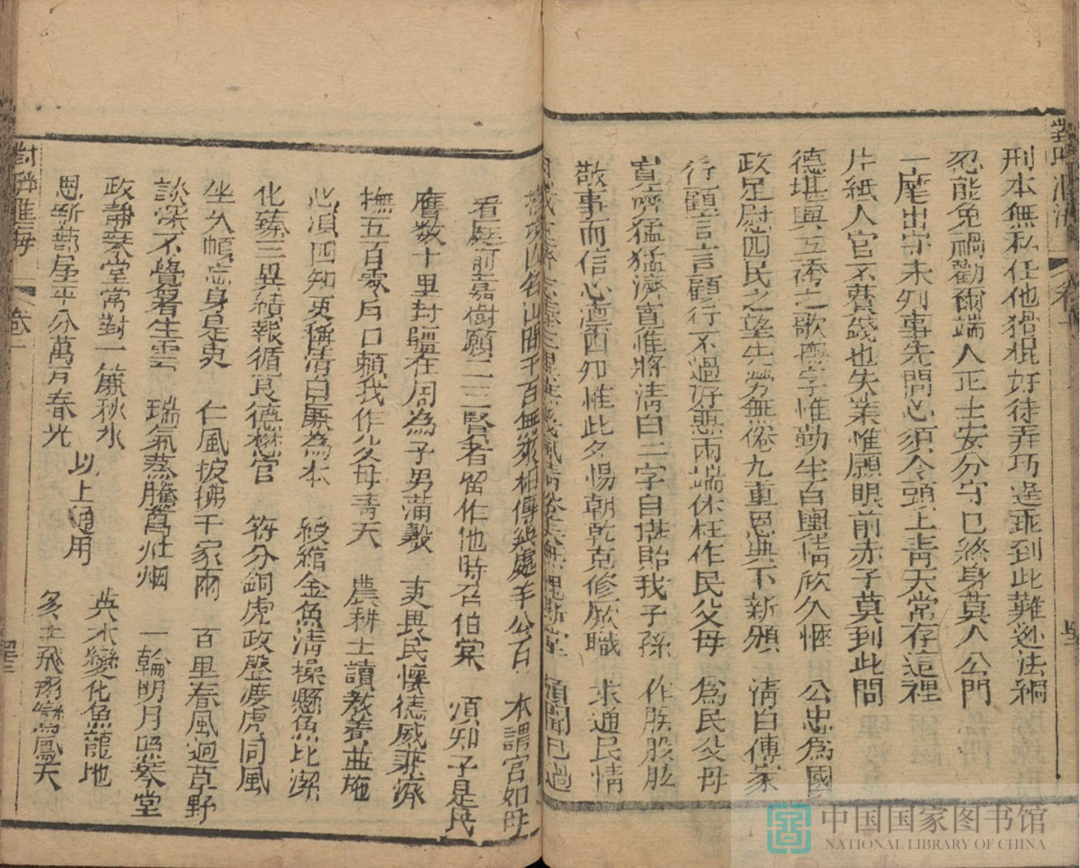 刑本無私任他猾棍好徒弄巧逞乖到此難逃法綱
忍能免禍勸爾端人正士安分守己終身莫入公門
一麾出守未列事先問心須令頭上青天常存這裡
片紙入官不費錢也失業惟願眼前赤子莫到此間
德堪興五袴之歌撫字惟勤生百輿情欣久愜 公忠為國
政足慰四民之望生 無俗九重恩典下新頒 清白傳家
行顧言言顧行不過好惡兩端休枉作民父母 為民父母
寬濟猛猛濟寬惟將清白二字自堪貽我子孫 作朕股肱
敬事而信心凛四知惟此冬惕朝乾克修厥職 求通民情
願聞已過
對聯滙海 卷
四名山間千百無 相傳 處 本謂官如母
看庭前嘉樹願二三賢者留作他時召伯棠 須知子是民
膺數十里封疆在周為子男蒲穀 吏畏民懷德威兼濟
撫五百零戶口賴我作父母青天 農耕士讀教養並施
心凛四知吏稱清白廉為本 綬綰金魚清操懸魚比潔
化臻三異績報循良德懋官 符分銅虎政聲渡虎同風
坐久幡忘身是吏 仁風披拂千家雨 百里春風迴草野
談深不覺署生雲 瑞氣蒸騰萬灶烟 一輪明月照琴堂
政靜琴堂常對一簾秋水
恩新蔀屋平分萬月春光 以上通用
英才變化魚龍地
多士飛翔 鳳天
對聯滙海 卷
中国国家图书馆
NATIONAL LIBRARY OF CHINA